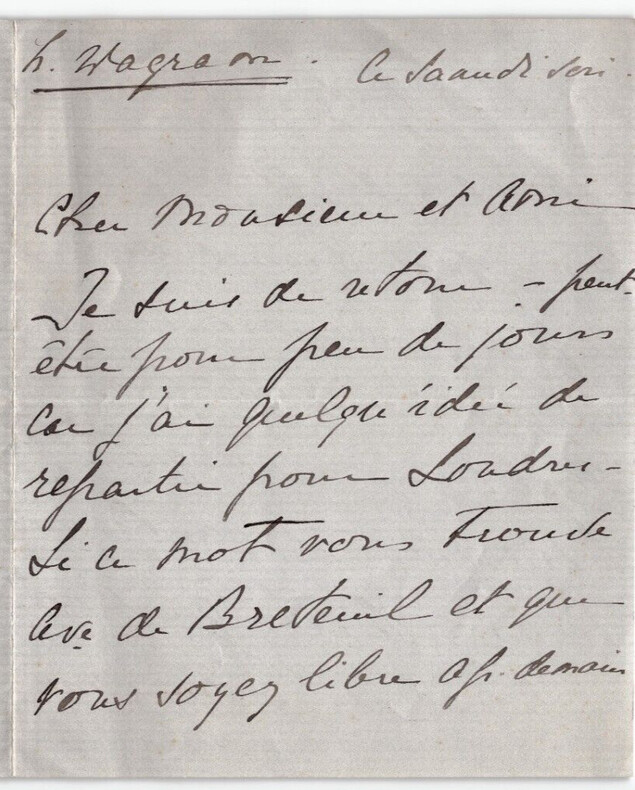 h. Wagram. Ce Samedi soir.
Cher Monsieur et Ami
Je suis de retour - peut-
être pour peu de jours
car j'ai quelqu'idée de
repartir pour Londres -
Si ce mot vous trouve
Ave de Breteuil et que
vous soyez libre ap. demain